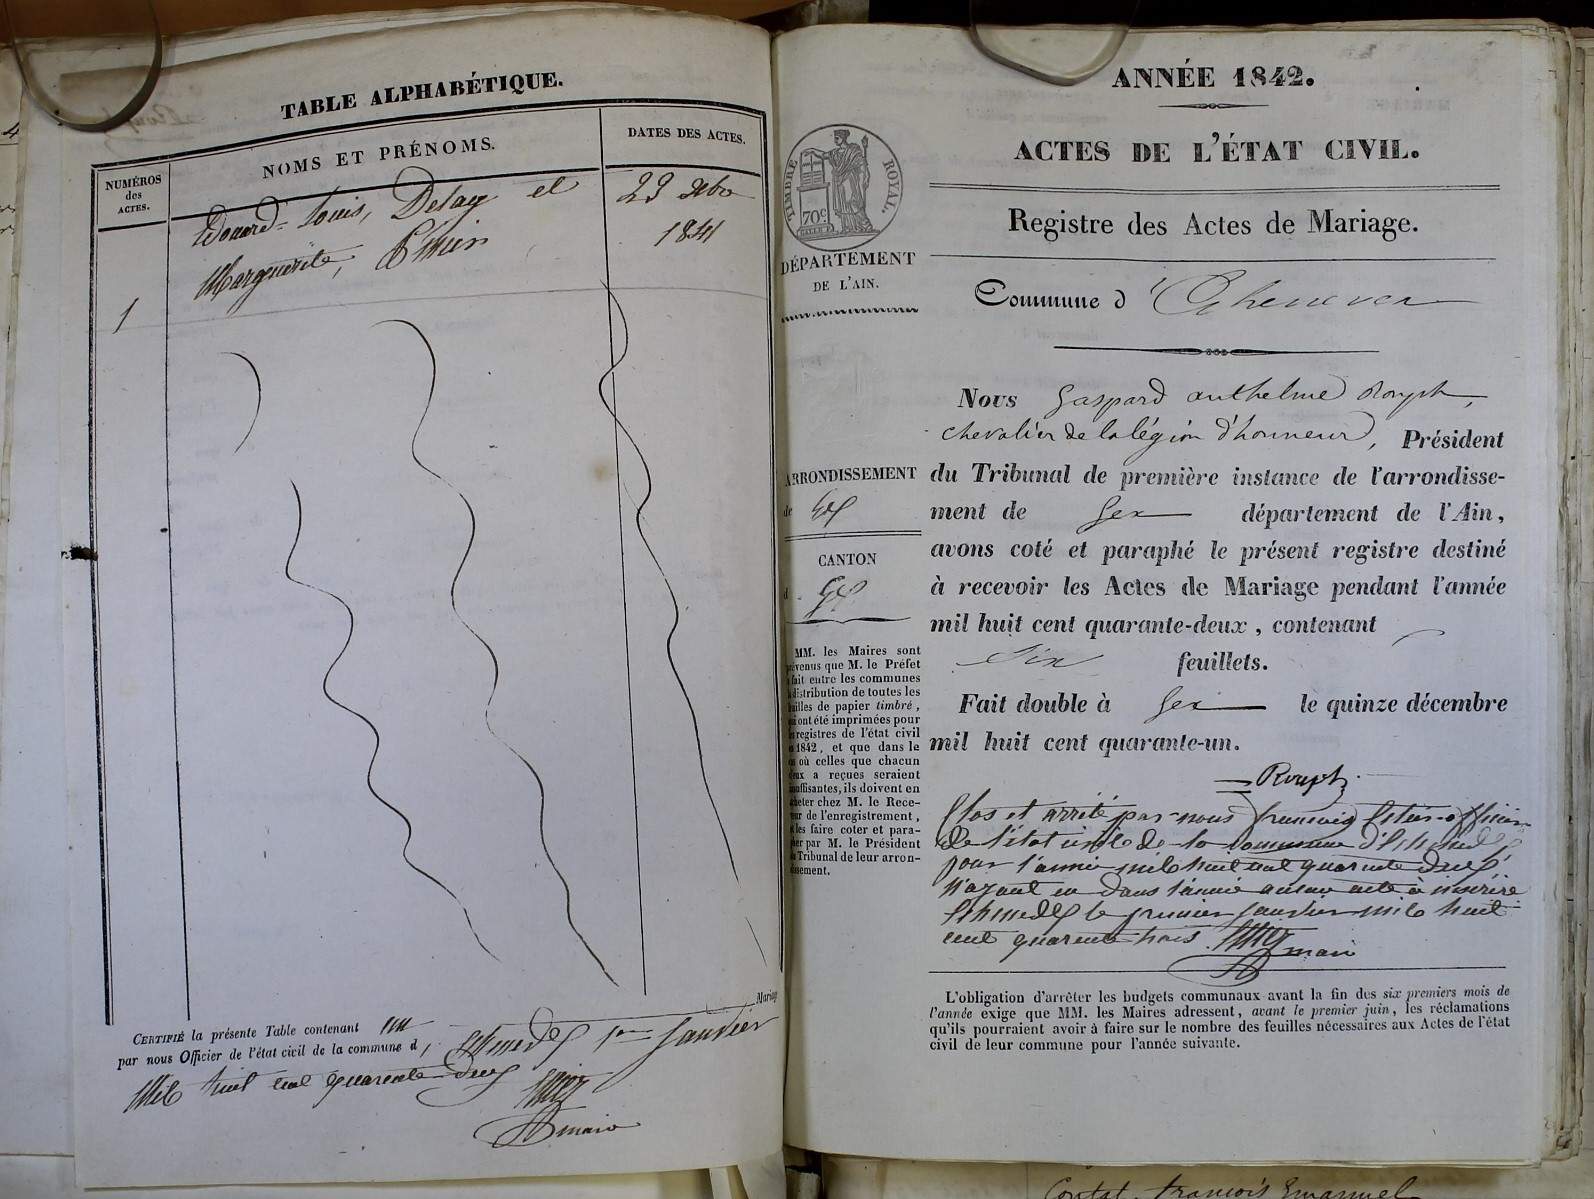 TABLE ALPHABÉTIQUE.
NUMÉROS
des
ACTES.
NOMS ET PRÉNOMS.
DATES DES ACTES.
Edouard-Louis, Delay et
23 xbre
Marguerite,
1841
1
Mariage
CERTIFIÉ la présente Table contenant un
par nous Officier de l'état civil de la commune d' Echenevex 1er Janvier
Mil huit cent quarante-deux
maire
TIMBRE ROYAL.
70c
DÉPARTEMENT
DE L'AIN.
ARRONDISSEMENT
de Gex
CANTON
d Gex
MM. les Maires sont
prévenus que M. le Préfet
a fait entre les communes
la distribution de toutes les
feuilles de papier timbré,
qui ont été imprimées pour
les registres de l'état civil
en 1842, et que dans le
cas où celles que chacun
d'eux a reçues seraient
insuffisantes, ils doivent en
acheter chez M. le Rece-
veur de l'enregistrement,
et les faire coter et para-
pher par M. le Président
du Tribunal de leur arron-
dissement.
ANNÉE 1842.
ACTES DE L'ÉTAT CIVIL.
Registre des Actes de Mariage.
Commune d'Echenevex
Nous Gaspard anthelme Rouph,
chevalier de la légion d'honneur, Président
du Tribunal de première instance de l'arrondisse-
ment de Gex département de l'Ain,
avons coté et paraphé le présent registre destiné
à recevoir les Actes de Mariage pendant l'année
mil huit cent quarante-deux, contenant
Six feuillets.
Fait double à Gex le quinze décembre
mil huit cent quarante-un.
Rouph
Clos et arrêté par-nous françois officier
de l'état civile de la commune d'Echenevex
pour l'année mile huit cent quarente deux
n'ayant eu dans l'année aucun acte à inscrire
Echenevex le premier janvier mile huit
cent quarente trois
maire
L'obligation d'arrêter les budgets communaux avant la fin des six premiers mois de
l'année exige que MM. les Maires adressent, avant le premier juin, les réclamations
qu'ils pourraient avoir à faire sur le nombre des feuilles nécessaires aux Actes de l'état
civil de leur commune pour l'année suivante.
Contat françois Emanuel